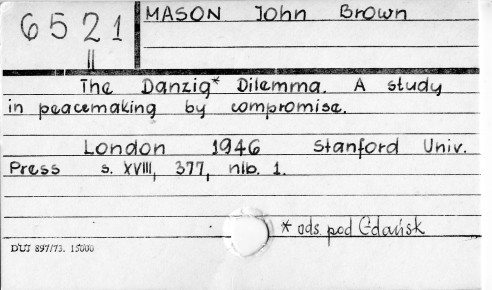 6521
II
MASON John Brown
The Danzig* Dilemma. A study
in peacemaking by compromise.
London 1946 Stanford Univ.
Press s. XVIII, 377, nlb. 1.
* ods. pod Gdańsk
DUJ 897/73. 15000